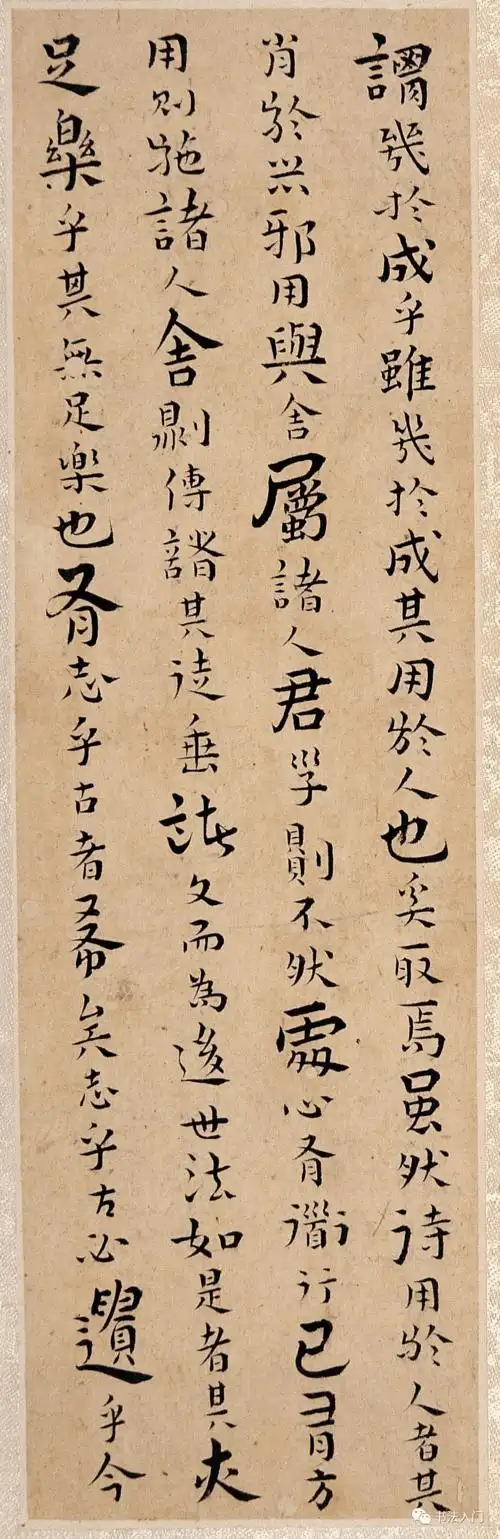 謂幾扵成乎雖幾扵成其用於人也奚取焉虽然待用於人者其
肖於器邪用與舍屬諸人君子則不然處心有道行己有方
用则施諸人舍則傳諸其徒垂諸文而為後世法如是者其亦
足樂乎其無足楽也有志乎古者希矣志乎古必遺乎今
书法入门